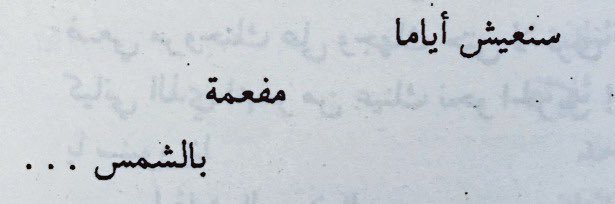 سنعيش أياما
مفعمة
بالشمس . . .